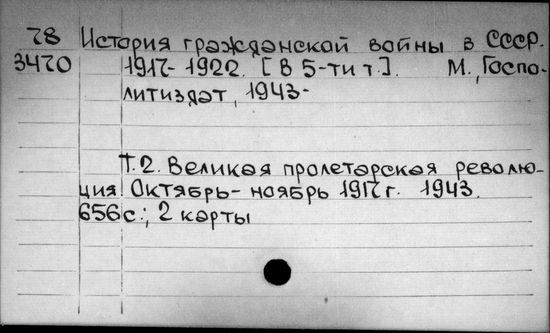 78 История гражданской войны в СССР.
3470 1917-1922. [В 5-ти т.]. М., Госпо-
литиздат, 1943-
Т. 2. Великая пролетарская револю-
ция. Октябрь-ноябрь 1917 г. 1943.
656 с.; 2 карты